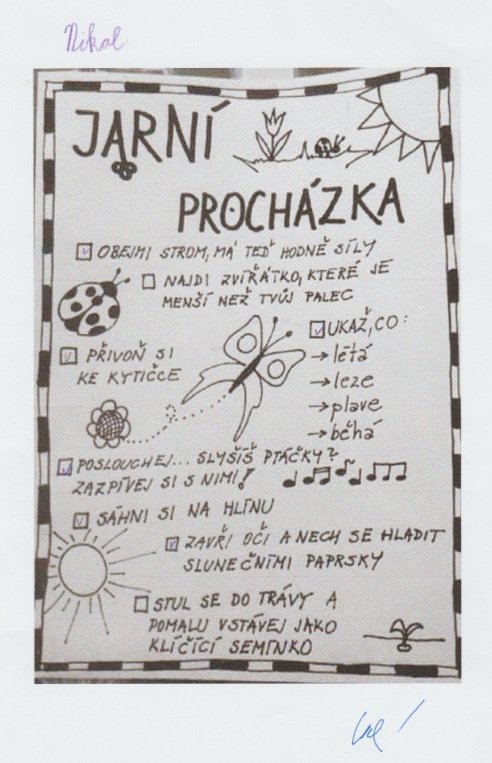 Nikol
JARNÍ
PROCHÁZKA
OBEJMI STROM, MÁ TEĎ HODNĚ SÍLY
NAJDI ZVÍŘÁTKO, KTERÉ JE
MENŠÍ NEŽ TVŮJ PALEC
UKAŽ, CO:
→ létá
→ leze
→ plave
→ běhá
PŘIVOŇ SI
KE KYTIČCE
POSLOUCHEJ... SLYŠÍŠ PTÁČKY?
ZAZPÍVEJ SI S NIMI!
SÁHNI SI NA HLÍNU
ZAVŘI OČI A NECH SE HLADIT
SLUNEČNÍMI PAPRSKY
STUL SE DO TRÁVY A
POMALU VSTÁVEJ JAKO
KLÍČÍCÍ SEMÍNKO